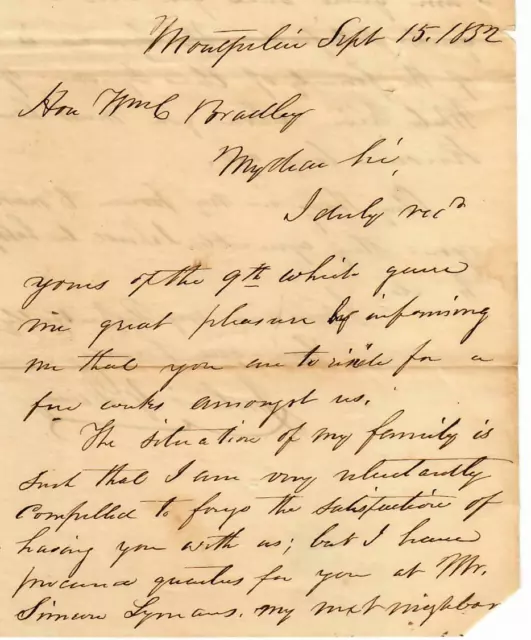 Montpelier Sept 15. 1832
Hon Wm C Bradley
My dear Sir,
I duly recd
yours of the 9th which gave
me great pleasure by informing
me that you are to reside for a
few weeks amongst us.
The situation of my family is
such that I am very reluctantly
compelled to forgo the satisfaction of
having you with us; but I have
procured quarters for you at Mr.
Simeon Lymans. my next neighbor